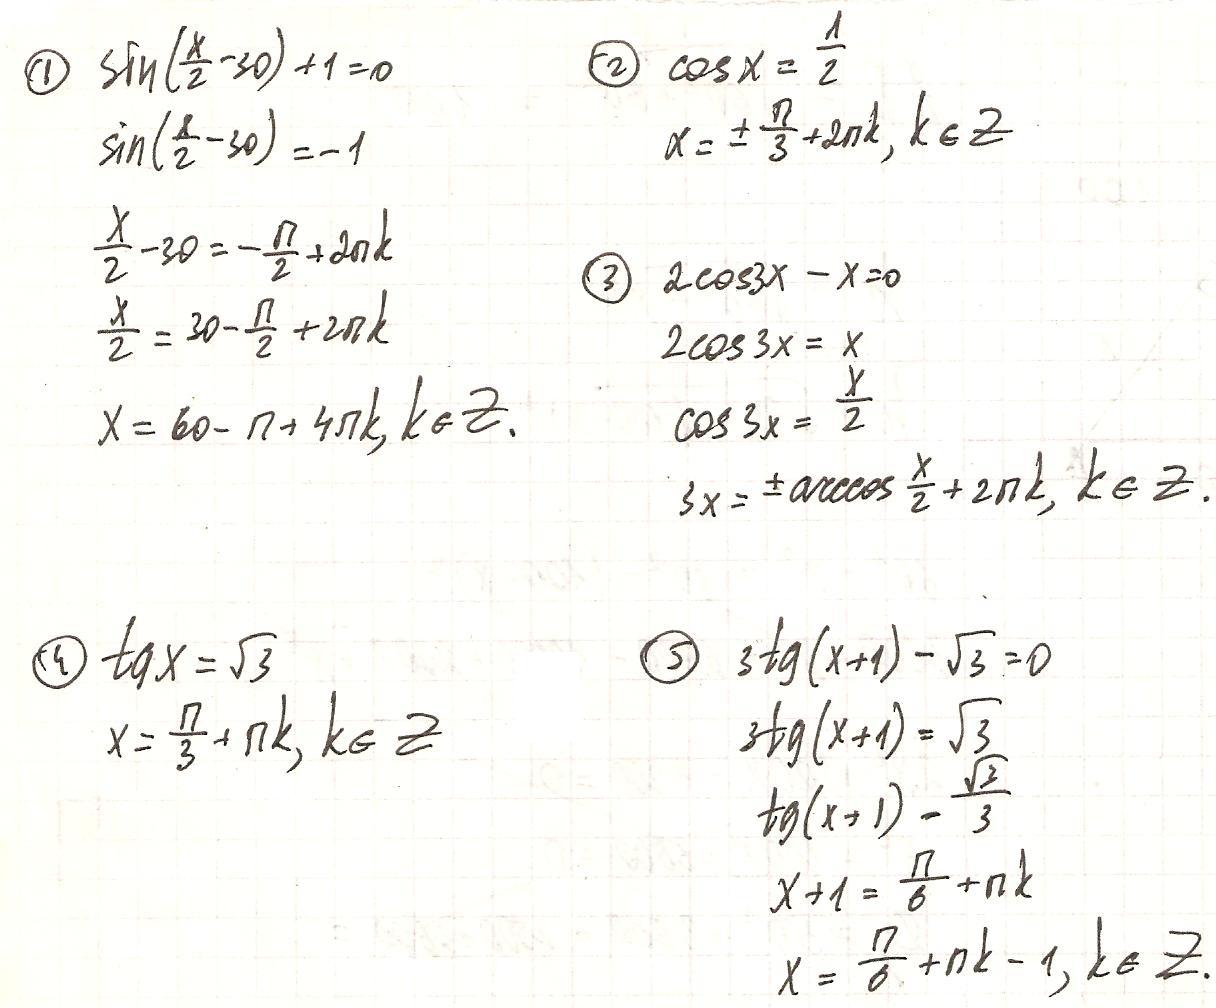 ① sin(x/2 -30) +1=0
sin(x/2 -30) =-1
x/2 -30 = -π/2 +2πk
x/2 = 30 - π/2 +2πk
x = 60 - π + 4πk, k ∈ Z.
② cos x = 1/2
x = ± π/3 +2πk, k ∈ Z
③ 2cos3x - x=0
2cos3x = x
cos3x = x/2
3x = ± arccos x/2 + 2πk, k ∈ Z.
④ tgx = √3
x = π/3 + πk, k ∈ Z
⑤ 3tg(x+1) - √3 =0
3tg(x+1) = √3
tg(x+1) = √3/3
x+1 = π/6 +πk
x = π/6 +πk - 1, k ∈ Z.